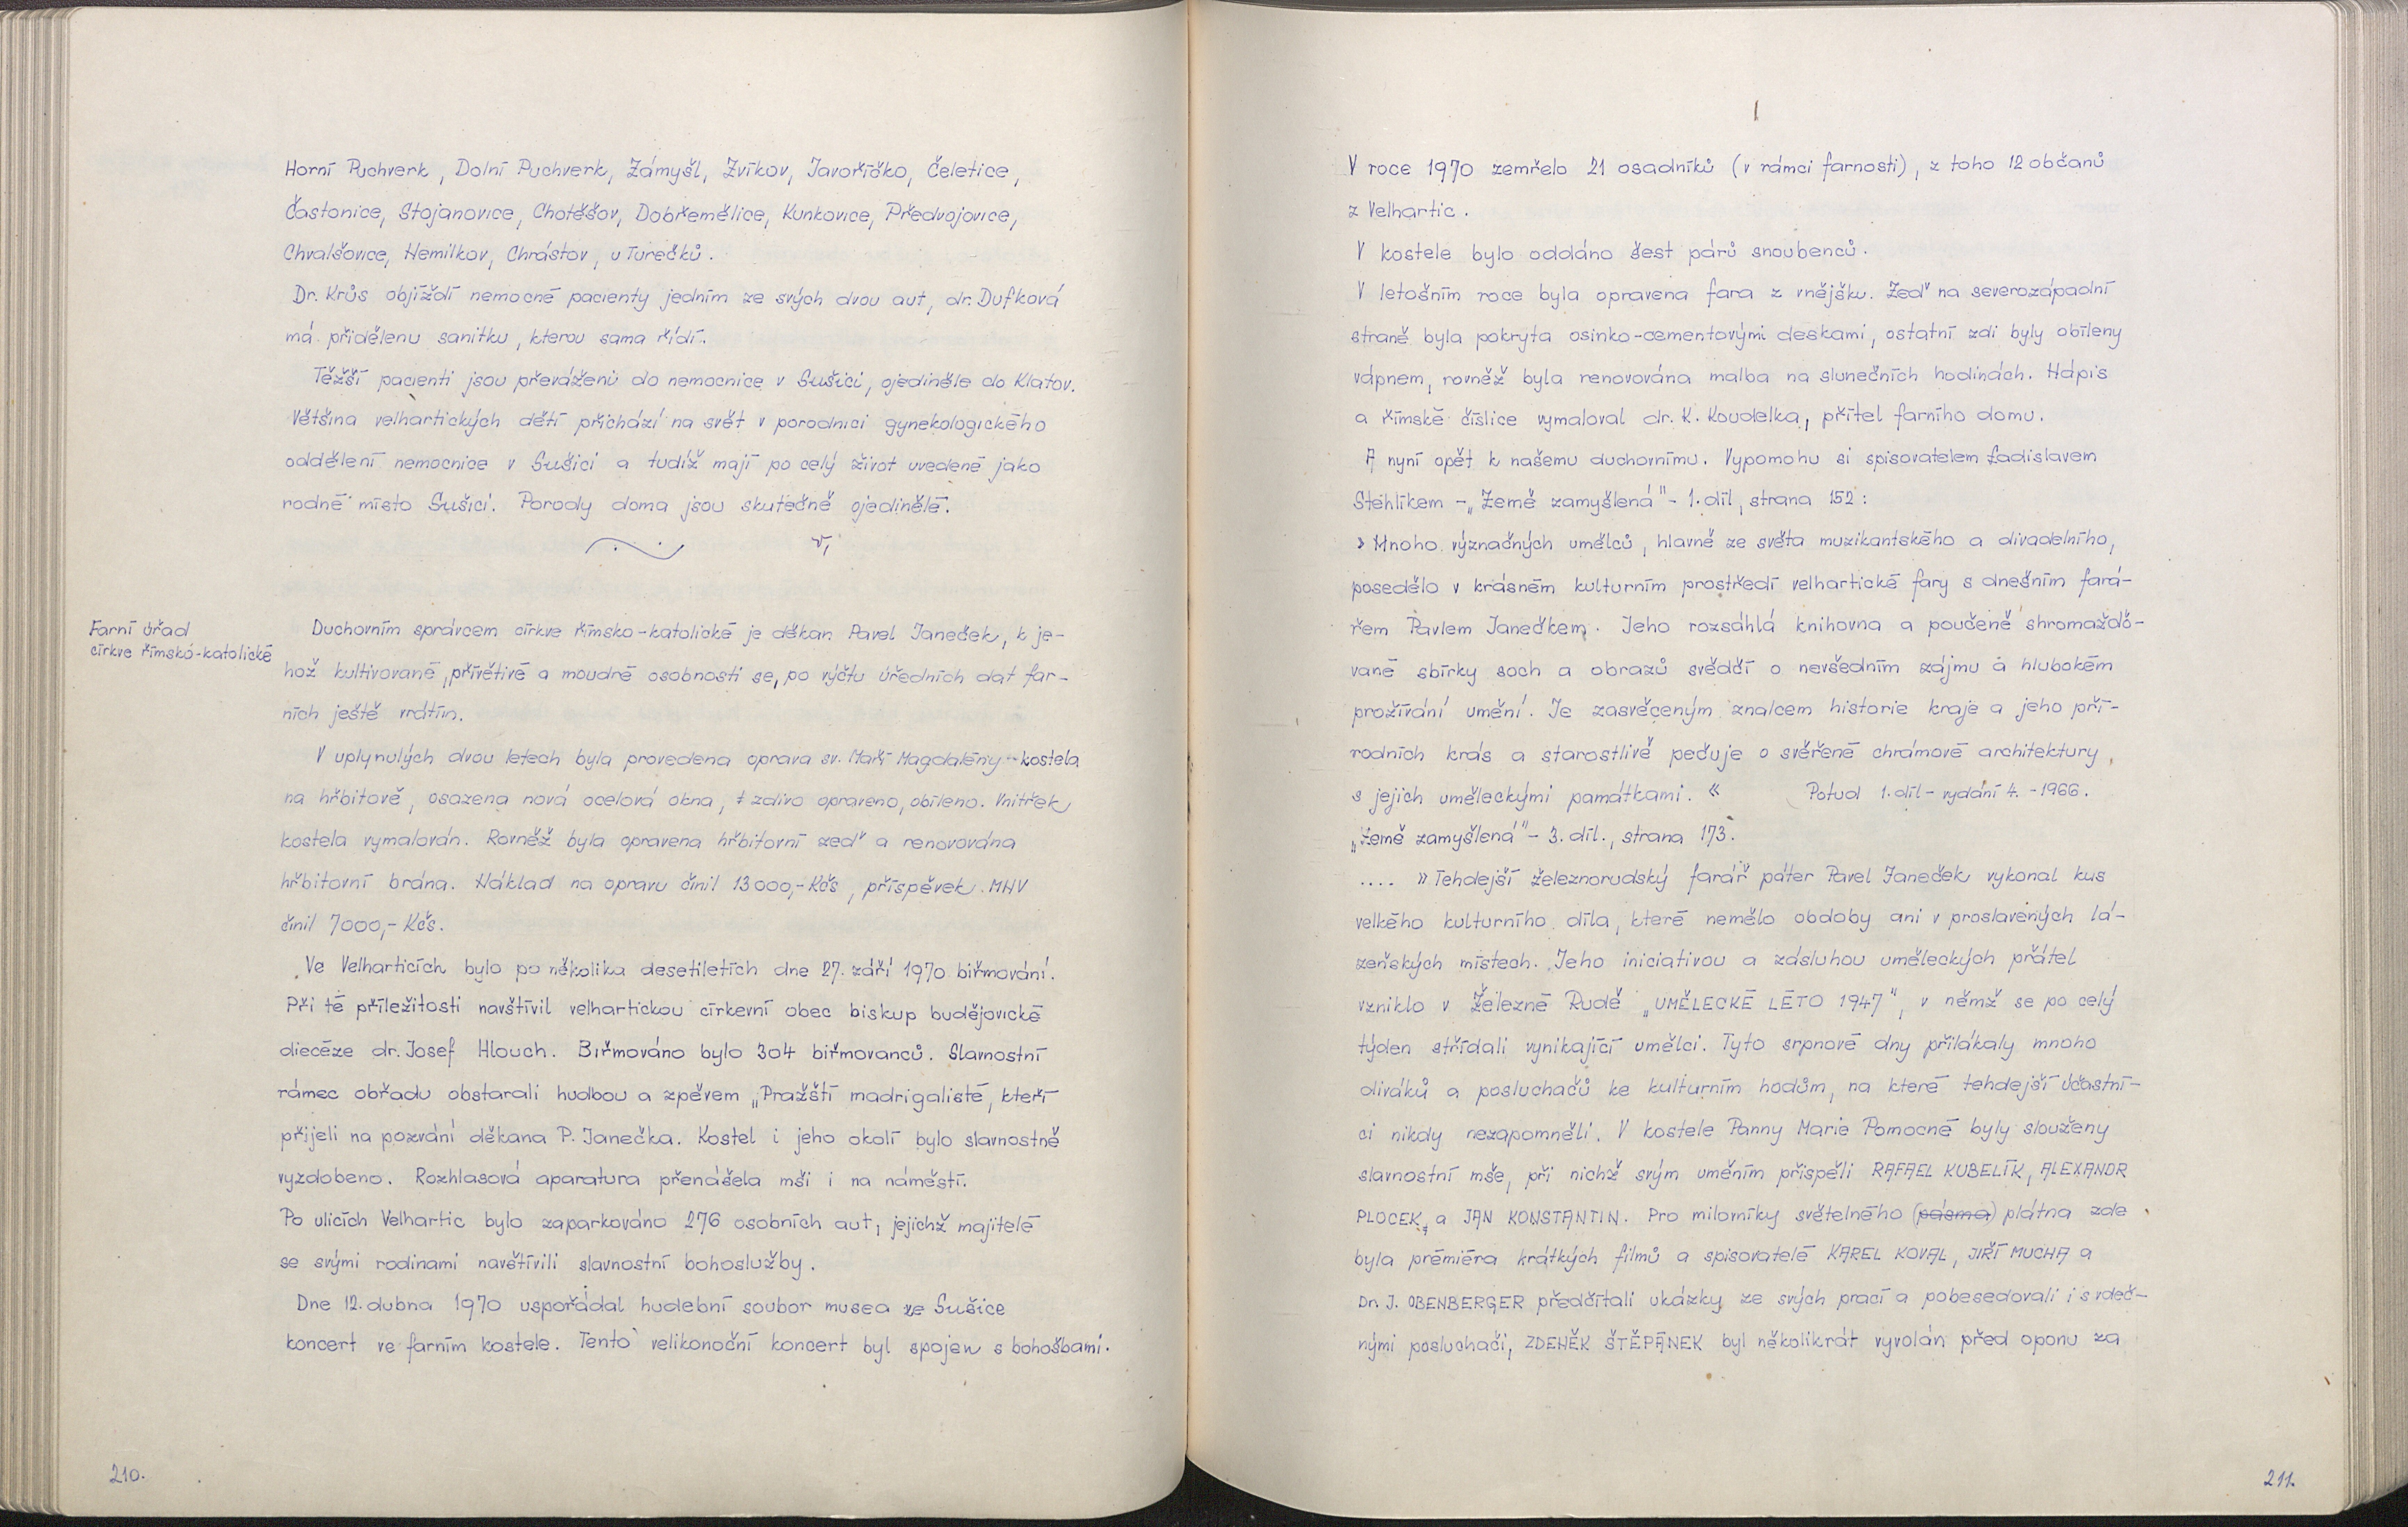 Horní Puchverk, Dolní Puchverk, Zámyšl, Zvíkov, Javoříčko, Čeletice,
Častonice, Stojanovice, Chotěšov, Dobřemělice, Kunkovice, Předvojovice,
Chvalšovice, Nemilkov, Chrástov, u Turečků.
Dr. Krůs objíždí nemocné pacienty jedním ze svých dvou aut, dr. Dufková
má přidělenu sanitku, kterou sama řídí.
Těžší pacienti jsou převáženi do nemocnice v Sušici, ojediněle do Klatov.
Většina velhartických dětí přichází na svět v porodnici gynekologického
oddělení nemocnice v Sušici a tudíž mají po celý život uvedené jako
rodné místo Sušici. Porody doma jsou skutečně ojedinělé.
Farní úřad
církve římsko-katolické
Duchovním správcem církve římsko-katolické je děkan Pavel Janeček, k je-
hož kultivované, přívětivé a moudré osobnosti se, po výčtu úředních dat far-
ních ještě vrátím.
V uplynulých dvou letech byla provedena oprava sv. Maří Magdalény - kostela
na hřbitově, osazena nová ocelová okna, zdivo opraveno, obíleno. Vnitřek
kostela vymalován. Rovněž byla opravena hřbitovní zeď a renovována
hřbitovní brána. Náklad na opravu činil 13000,- Kčs, příspěvek MNV
činil 7000,- Kčs.
Ve Velharticích bylo po několika desetiletích dne 27. září 1970 biřmování.
Při té příležitosti navštívil velhartickou církevní obec biskup budějovické
diecéze dr. Josef Hlouch. Biřmováno bylo 304 biřmovanců. Slavnostní
rámec obřadu obstarali hudbou a zpěvem „Pražští madrigalisté, kteří
přijeli na pozvání děkana P. Janečka. Kostel i jeho okolí bylo slavnostně
vyzdobeno. Rozhlasová aparatura přenášela mši i na náměstí.
Po ulicích Velhartic bylo zaparkováno 276 osobních aut, jejichž majitelé
se svými rodinami navštívili slavnostní bohoslužby.
Dne 12. dubna 1970 uspořádal hudební soubor musea ze Sušice
koncert ve farním kostele. Tento velikonoční koncert byl spojen s bohošbami.
210.
V roce 1970 zemřelo 21 osadníků (v rámci farnosti), z toho 12 občanů
z Velhartic.
V kostele bylo oddáno šest párů snoubenců.
V letošním roce byla opravena fara z vnějšku. Zeď na severozápadní
straně byla pokryta osinko-cementovými deskami, ostatní zdi byly obíleny
vápnem, rovněž byla renovována malba na slunečních hodinách. Nápis
a římské číslice vymaloval dr. K. Koudelka, přítel farního domu.
A nyní opět k našemu duchovnímu. Vypomohu si spisovatelem Ladislavem
Stehlíkem - „Země zamyšlená" - 1. díl, strana 152:
» Mnoho význačných umělců, hlavně ze světa muzikantského a divadelního,
posedělo v krásném kulturním prostředí velhartické fary s dnešním fará-
řem Pavlem Janečkem. Jeho rozsáhlá knihovna a poučeně shromaždo-
vané sbírky soch a obrazů svědčí o nevšedním zájmu a hlubokém
prožívání umění. Je zasvěceným znalcem historie kraje a jeho pří-
rodních krás a starostlivě pečuje o svěřené chrámové architektury
s jejich uměleckými památkami. « Potud 1. díl - vydání 4. - 1966.
„Země zamyšlená" - 3. díl., strana 173.
.... » Tehdejší železnorudský farář páter Pavel Janeček vykonal kus
velkého kulturního díla, které nemělo obdoby ani v proslavených lá-
zeňských místech. Jeho iniciativou a zásluhou uměleckých přátel
vzniklo v Železné Rudě „UMĚLECKÉ LÉTO 1947", v němž se po celý
týden střídali vynikající umělci. Tyto srpnové dny přilákaly mnoho
diváků a posluchačů ke kulturním hodům, na které tehdejší účastní-
ci nikdy nezapomněli. V kostele Panny Marie Pomocné byly slouženy
slavnostní mše, při nichž svým uměním přispěli RAFAEL KUBELÍK, ALEXANDR
PLOCEK, a JAN KONSTANTIN. Pro milovníky světelného (pásma) plátna zde
byla premiéra krátkých filmů a spisovatelé KAREL KOVAL, JIŘÍ MUCHA a
Dr. J. OBENBERGER předčítali ukázky ze svých prací a pobesedovali i s vděč-
nými posluchači, ZDENĚK ŠTĚPÁNEK byl několikrát vyvolán před oponu za
211.